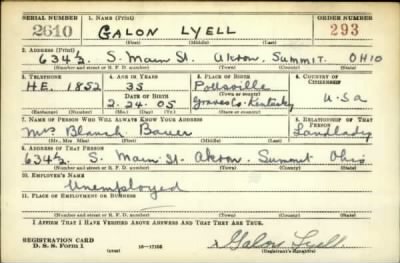 SERIAL NUMBER 1. NAME (Print) ORDER NUMBER
2610 GALON LYELL 293
(First) (Middle) (Last)
2. ADDRESS (Print)
634½ S. Main St. Akron, Summit OHIO
(Number and street or R. F. D. number) (Town) (County) (State)
3. TELEPHONE 4. AGE IN YEARS 5. PLACE OF BIRTH 6. COUNTRY OF CITIZENSHIP
H.E. 1852 35 Pottsville
DATE OF BIRTH (Town or county)
2-24-05 Graves Co. Kentucky U-S-a
(Exchange) (Number) (Mo.) (Day) (Yr.) (State or country)
7. NAME OF PERSON WHO WILL ALWAYS KNOW YOUR ADDRESS 8. RELATIONSHIP OF THAT PERSON
Mrs Blanch Bauer Landlady
(Mr., Mrs., Miss) (First) (Middle) (Last)
9. ADDRESS OF THAT PERSON
634½ S. Main St. Akron, Summit Ohio
(Number and street or R. F. D. number) (Town) (County) (State)
10. EMPLOYER'S NAME
Unemployed
11. PLACE OF EMPLOYMENT OR BUSINESS
(Number and street or R. F. D. number) (Town) (County) (State)
I AFFIRM THAT I HAVE VERIFIED ABOVE ANSWERS AND THAT THEY ARE TRUE.
REGISTRATION CARD
D. S. S. Form 1 (over) 16-17105 Galon Lyell
(Registrant's signature)